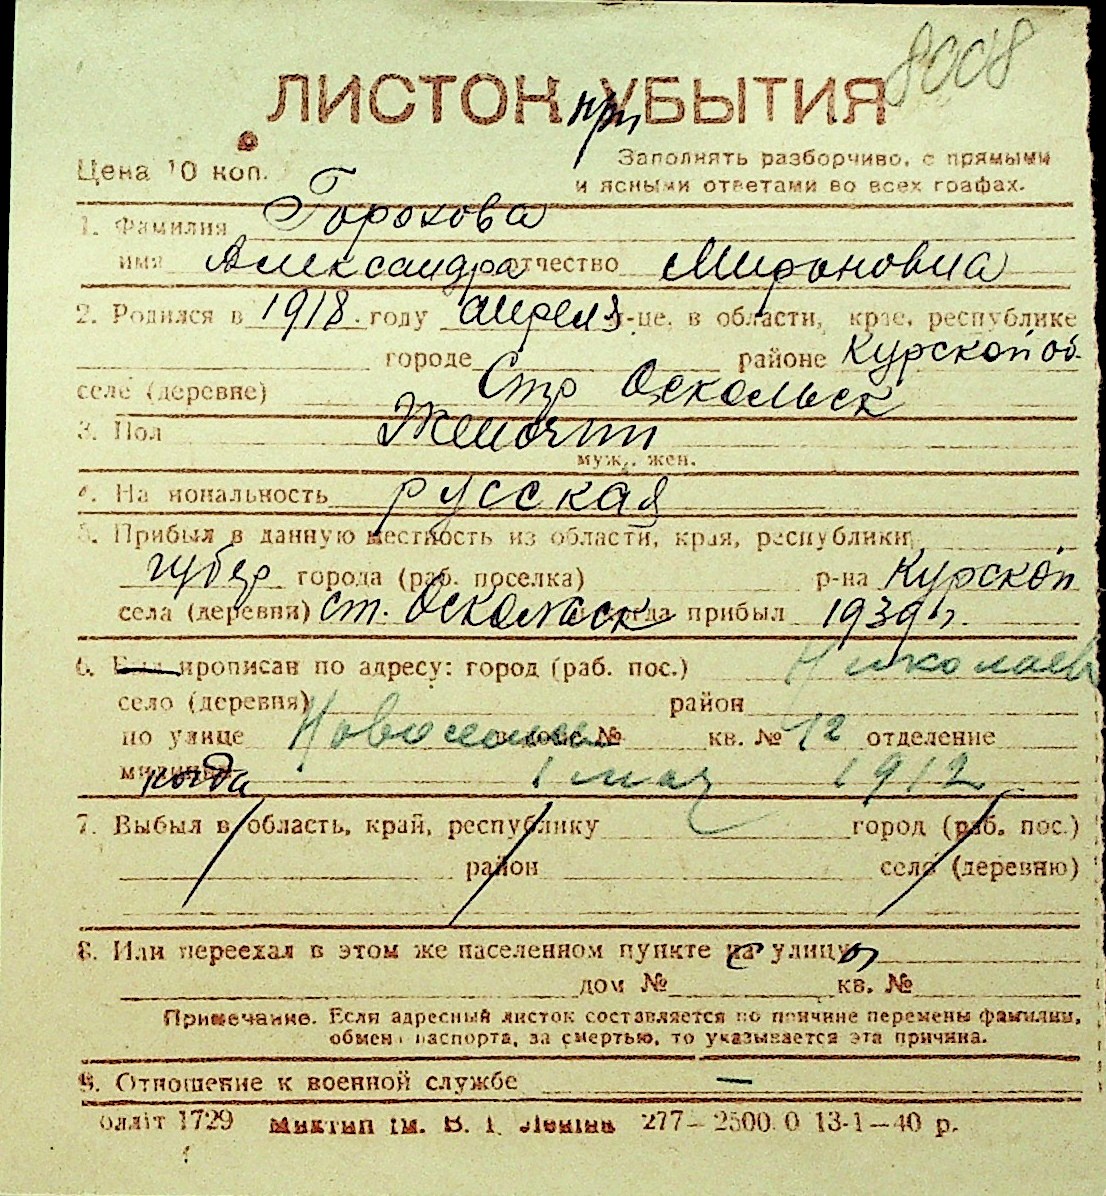 8008
ЛИСТОК УБЫТИЯ
при
Цена 10 коп.
Заполнять разборчиво, с прямыми
и ясными ответами во всех графах.
1. Фамилия Горохова
имя Александра отчество Мироновна
2. Родился в 1918. году апреля м-це, в области, крае, республике
городе районе Курской об.
селе (деревне) Стр Оскольск
3. Пол Женский
муж., жен.
4. Национальность русская
5. Прибыл в данную местность из области, края, республики
губер города (раб. поселка) р-на Курской
села (деревни) ст. Оскольск когда прибыл 1939 г.
6. Был прописан по адресу: город (раб. пос.) Николаев
село (деревня) район
по улице дом № кв. № 12 отделение
милиции когда 1 мая 1912
7. Выбыл в область, край, республику город (раб. пос.)
район село (деревню)
8. Или переехал в этом же населенном пункте на с улицы
дом № кв. №
Примечание. Если адресный листок составляется по причине перемены фамилии,
обмена паспорта, за смертью, то указывается эта причина.
9. Отношение к военной службе —
олліт 1729 Миктип ім. В. І. Леніна 277—2500. 0 13-1—40 р.